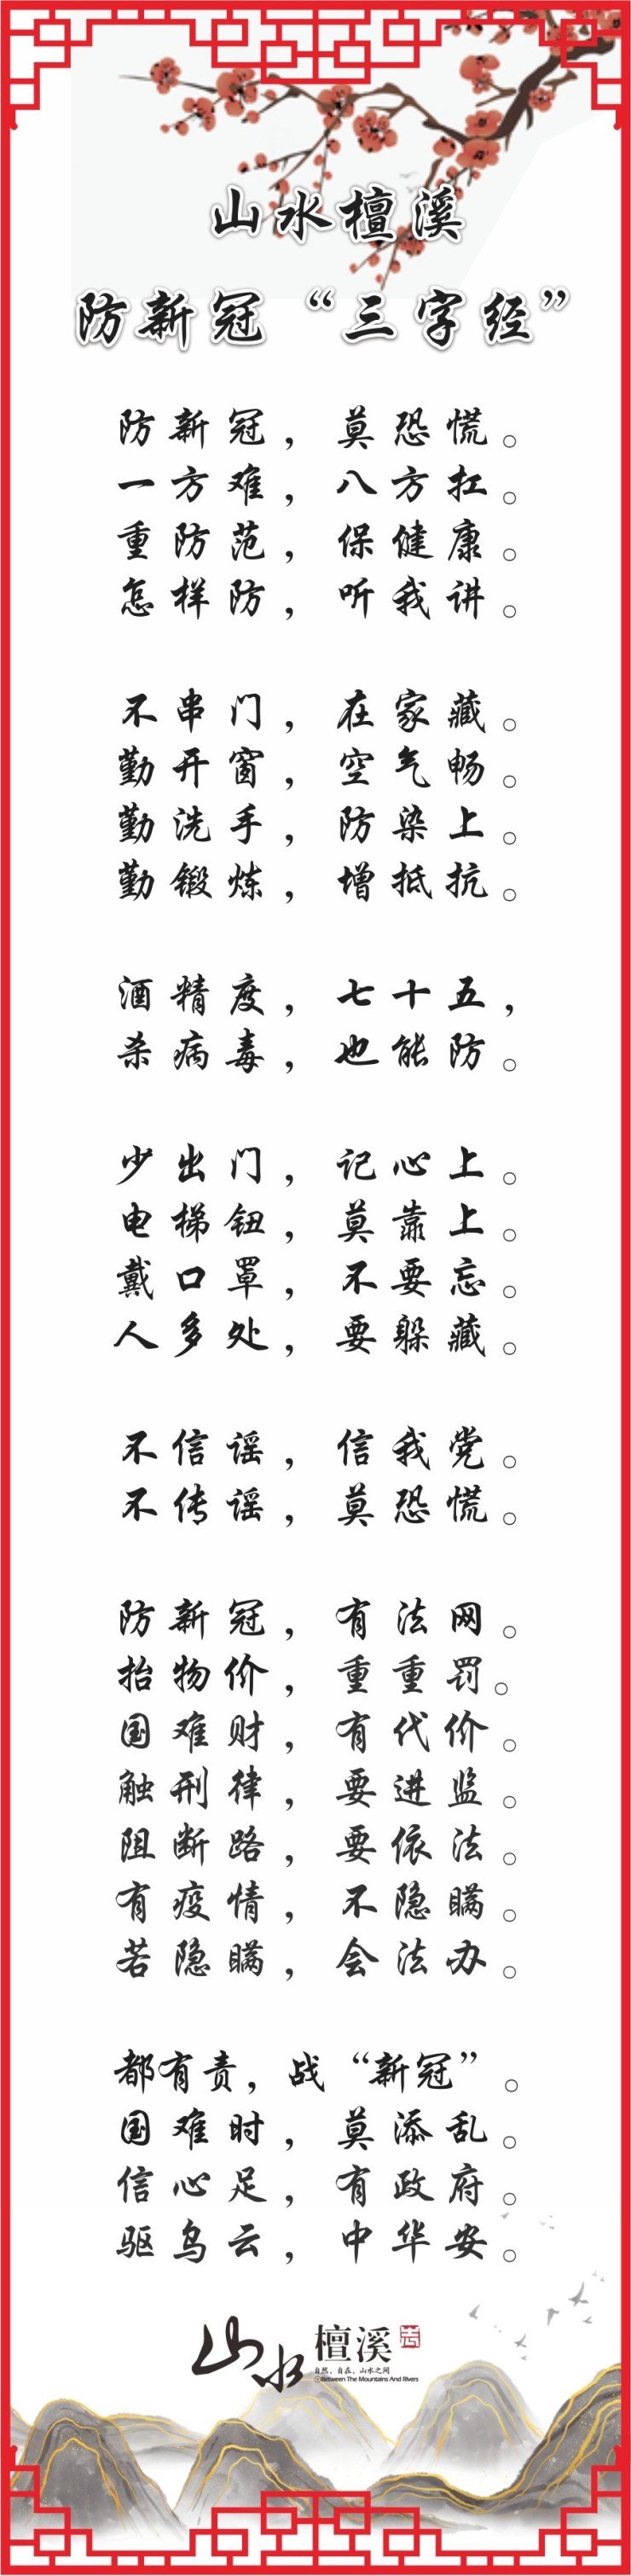 山水檀溪
防新冠“三字经”
防新冠，莫恐慌。
一方难，八方扛。
重防范，保健康。
怎样防，听我讲。
不串门，在家藏。
勤开窗，空气畅。
勤洗手，防染上。
勤锻炼，增抵抗。
酒精度，七十五，
杀病毒，也能防。
少出门，记心上。
电梯钮，莫靠上。
戴口罩，不要忘。
人多处，要躲藏。
不信谣，信我党。
不传谣，莫恐慌。
防新冠，有法网。
抬物价，重重罚。
国难财，有代价。
触刑律，要进监。
阻断路，要依法。
有疫情，不隐瞒。
若隐瞒，会法办。
都有责，战“新冠”。
国难时，莫添乱。
信心足，有政府。
驱乌云，中华安。
山水檀溪
自然、自在，山水之间
Between The Mountains And Rivers